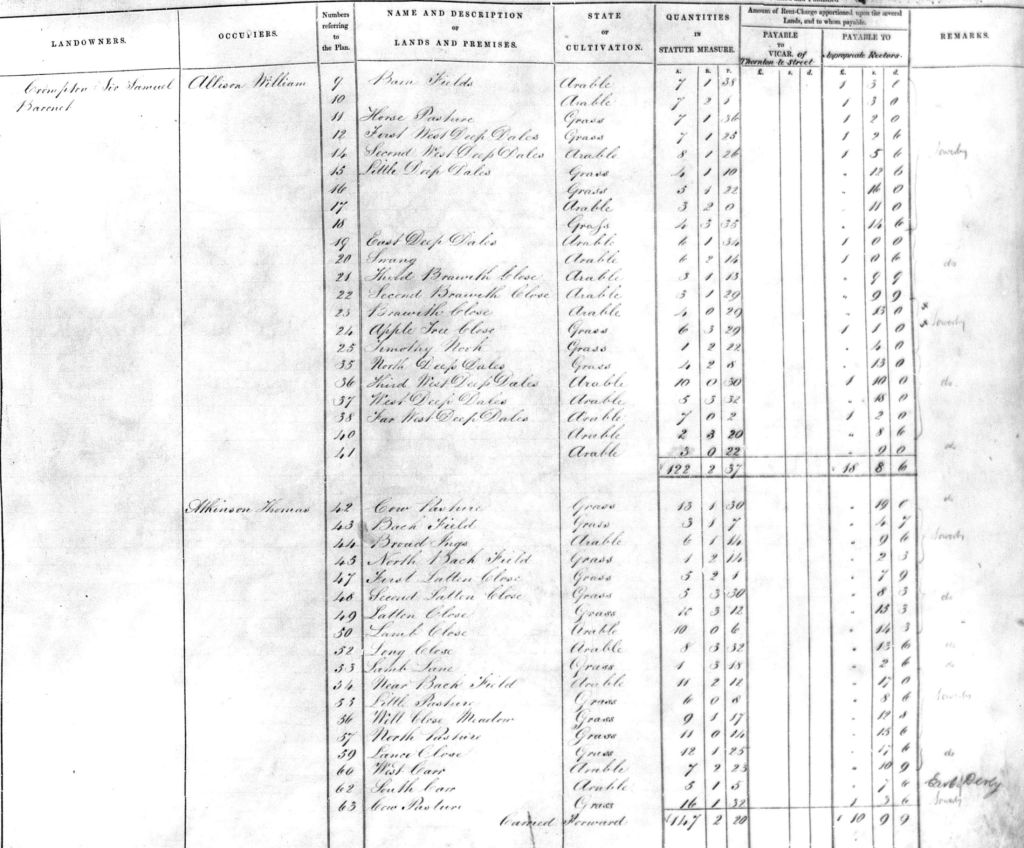 LANDOWNERS. OCCUPIERS. Numbers referring to the Plan. NAME AND DESCRIPTION OF LANDS AND PREMISES. STATE OF CULTIVATION. QUANTITIES IN STATUTE MEASURE. Amount of Rent-Charge apportioned upon the several Lands, and to whom payable. PAYABLE TO VICAR of Thornton le Street PAYABLE TO Appropriate Rectors. REMARKS.
A. R. P. £. s. d. £. s. d.
Crompton Sir Samuel Allison William 9 Barn Fields Arable 7 1 38 1 3
Baronet 10 Arable 7 2 1 1 3 0
11 Horse Pasture Grass 7 1 36 1 2 0
12 First West Deep Dales Grass 7 1 25 1 2 6
14 Second West Deep Dales Arable 8 1 26 1 5 6 Sowerby
15 Little Deep Dales Grass 4 1 10 " 12 6
16 Grass 5 1 22 " 16 0
17 Arable 3 2 0 " 11 0
18 Grass 4 3 35 " 14 6
19 East Deep Dales Arable 6 1 34 1 0 0
20 Swang Arable 6 2 14 1 0 6 do
21 Third Brawith Close Arable 3 1 13 " 9 9
22 Second Brawith Close Arable 3 1 29 " 9 9
23 Brawith Close Arable 4 0 29 " 13 0
24 Apple Tree Close Grass 6 3 29 1 1 0 Sowerby
25 Timothy Nook Grass 1 2 22 " 4 0
35 North Deep Dales Grass 4 2 8 " 13 0
36 Third West Deep Dales Arable 10 0 30 1 10 0 do
37 West Deep Dales Arable 5 3 32 " 18 0
38 Far West Deep Dales Arable 7 0 2 1 2 0
40 Arable 2 3 20 " 8 6
41 Arable 3 0 22 " 9 0 do
£122 2 37 £18 8 6
Atkinson Thomas 42 Cow Pasture Grass 13 1 30 " 19 0 do
43 Back Field Grass 3 1 7 " 4 7
44 Broad Ings Arable 6 1 14 " 9 6 Sowerby
45 North Back Field Grass 1 2 14 " 2 3
47 First Latten Close Grass 5 2 1 " 7 9
48 Second Latten Close Grass 5 3 30 " 8 3 do
49 Latten Close Grass 3 12 " 15 3
50 Lamb Close Arable 10 0 6 " 14 3
52 Long Close Arable 8 3 32 " 13 6 do
53 Lamb Lane Grass 1 3 18 " 2 6 do
54 Near Back Field Arable 11 2 12 " 17 0
55 Little Pasture Grass 6 0 8 " 8 6 Sowerby
56 Well Close Meadow Grass 9 1 17 " 12 8
57 North Pasture Grass 11 0 14 " 15 6
59 Lance Close Grass 12 1 25 " 17 6 do
60 West Carr Arable 7 2 23 " 10 9
62 South Carr Arable 5 1 5 " 7 6 Derby
63 Cow Pasture Grass 16 1 32 1 3 6 Sowerby
Carried Forward £147 2 20 £10 9 9